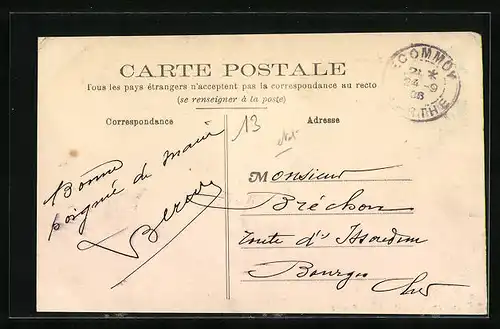 CARTE POSTALE
Tous les pays étrangers n'acceptent pas la correspondance au recto
(se renseigner à la poste)
Correspondance
Adresse
ECOMMOY
2E *
24 -9
08
SARTHE
13
Bonne
poignée de main
Monsieur
Bréchon
route d'Issoudun
Bourges
Cher